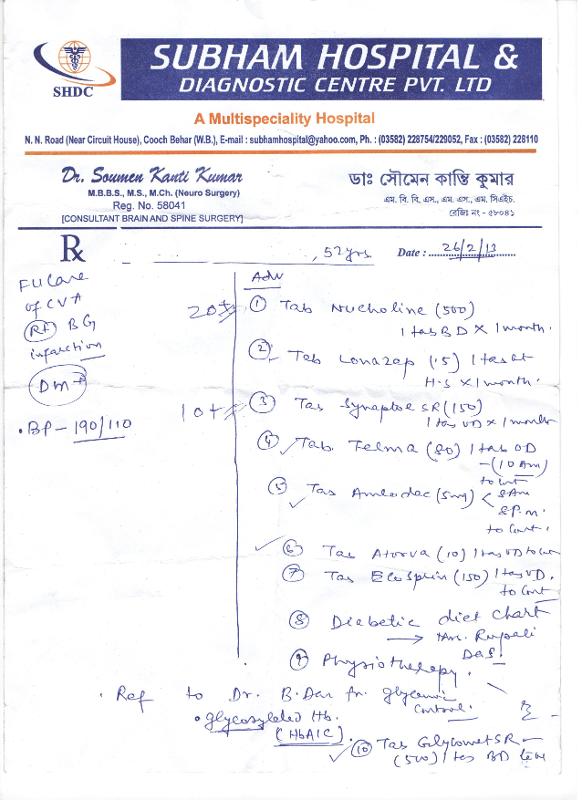 SHDC
SUBHAM HOSPITAL &
DIAGNOSTIC CENTRE PVT. LTD
A Multispeciality Hospital
N. N. Road (Near Circuit House), Cooch Behar (W.B.), E-mail : subhamhospital@yahoo.com, Ph. : (03582) 228754/229052, Fax : (03582) 228110
Dr. Soumen Kanti Kumar
M.B.B.S., M.S., M.Ch. (Neuro Surgery)
Reg. No. 58041
[CONSULTANT BRAIN AND SPINE SURGERY]
ডাঃ সৌমেন কান্তি কুমার
এম. বি. বি. এস., এম. এস., এম. সিএইচ.
রেজিঃ নং - ৫৮০৪১
Rx , 52 yrs Date : 26/2/13
F U Case
of CVA
(Rt) BG
infarction
DM+
• BP - 190/110
Adv
20+ ① Tab Nucholine (500)
1 tab BD X 1 month.
② Tab Lonazep (.5) 1 tab at
H.S X 1 month.
10+ ③ Tab Synaptol SR (150)
1 tab OD X 1 month
④ Tab. Telma (80) 1 tab OD
- (10 Am)
to cont
⑤ Tab Amlodac (5mg) < 8 Am
8 P.m.
to cont.
⑥ Tab Atorva (10) 1 tab OD to cont
⑦ Tab Ecosprin (150) 1 tab OD.
to cont
⑧ Diabetic diet chart
→ Rupali
Das.
⑨ Physiotherapy.
• Ref to Dr. B. Das for glycemic
control.
• glycosylated Hb.
(HbA1C)
⑩ Tab Glycomet SR -
(500) 1 tab BD